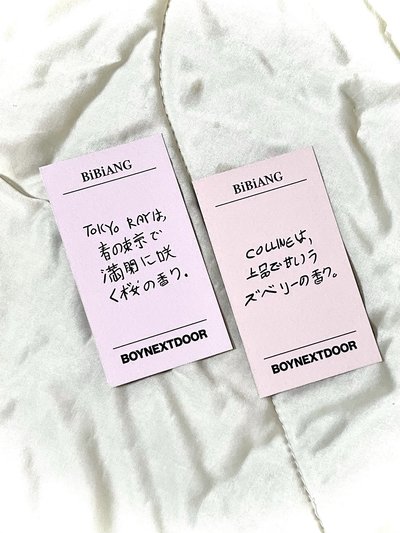 BiBiANG
TOKYO RAYは、
春の東京で
満開に咲
く桜の香り.
BOYNEXTDOOR
BiBiANG
COLLINEは、
上品で甘いラ
ズベリーの香り。
BOYNEXTDOOR